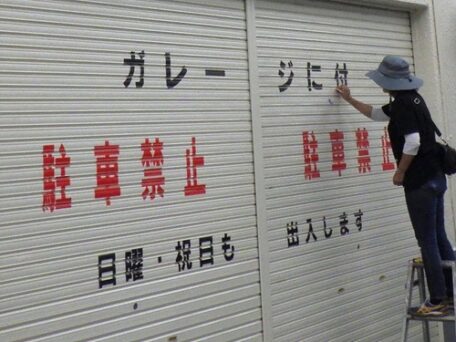 ガレージに付
駐車禁止
駐車禁止
日曜・祝日も
出入します